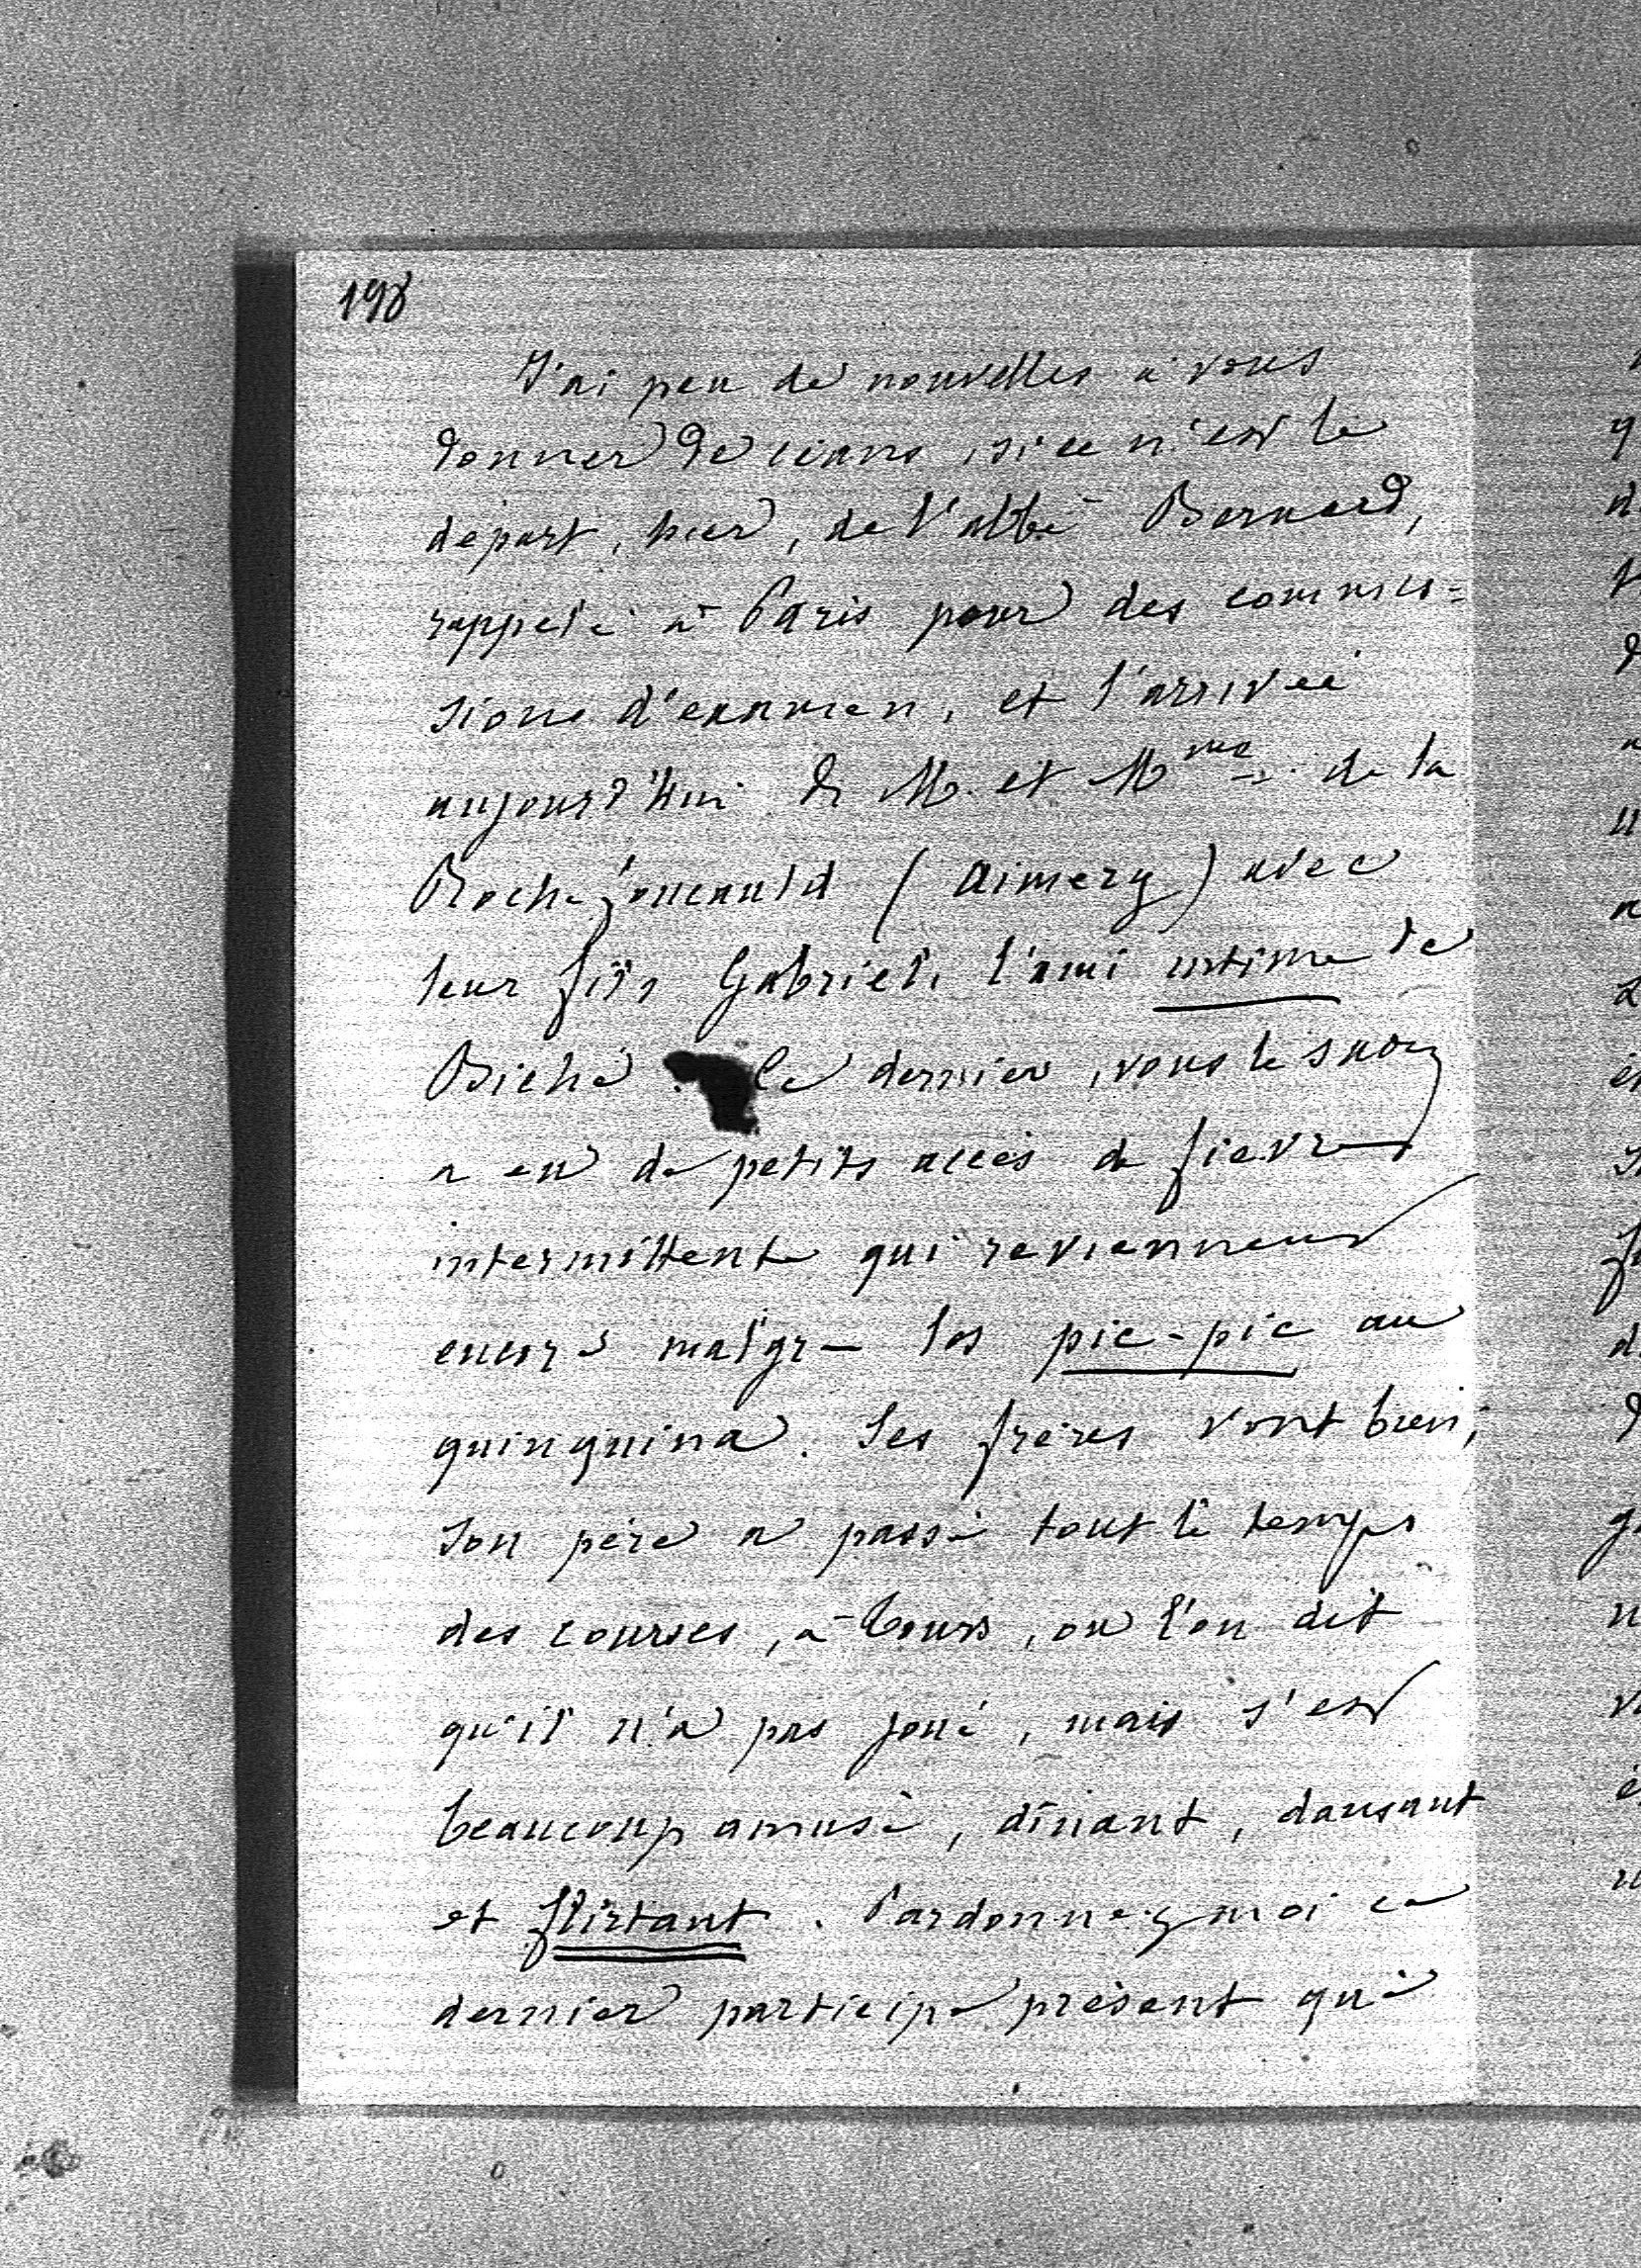 198
J'ai peu de nouvelles à vous
donner de céans, si ce n'est le
départ, hier, de l'abbé Bernard,
rappelé à Paris pour des commis=
sions d'examen, et l'arrivée
aujourd'hui de M. et Mme de la
Rochefoucauld (Aimery) avec
leur fils Gabriel, l'ami intime de
Biché. Ce dernier, vous le savez
a eu de petits accès de fièvre
intermittente qui reviennent
encore malgré les pic-pic au
quinquina. Ses frères vont bien;
son père a passé tout le temps
des courses, à Tours, où l'on dit
qu'il n'a pas joué, mais s'est
beaucoup amusé, dînant, dansant
et flirtant. Pardonnez moi ce
dernier participe présent qui